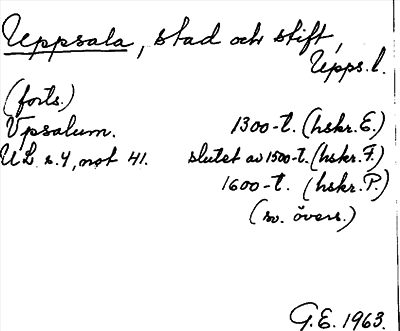 Uppsala, stad och stift,
Upps.l.
(forts.)
Vpsalum. 1300-t. (hskr. E.)
UL s. 4, not 41. slutet av 1500-t. (hskr. F.)
1600-t. (hskr. P.)
(sv. övers.)
G.E. 1963.